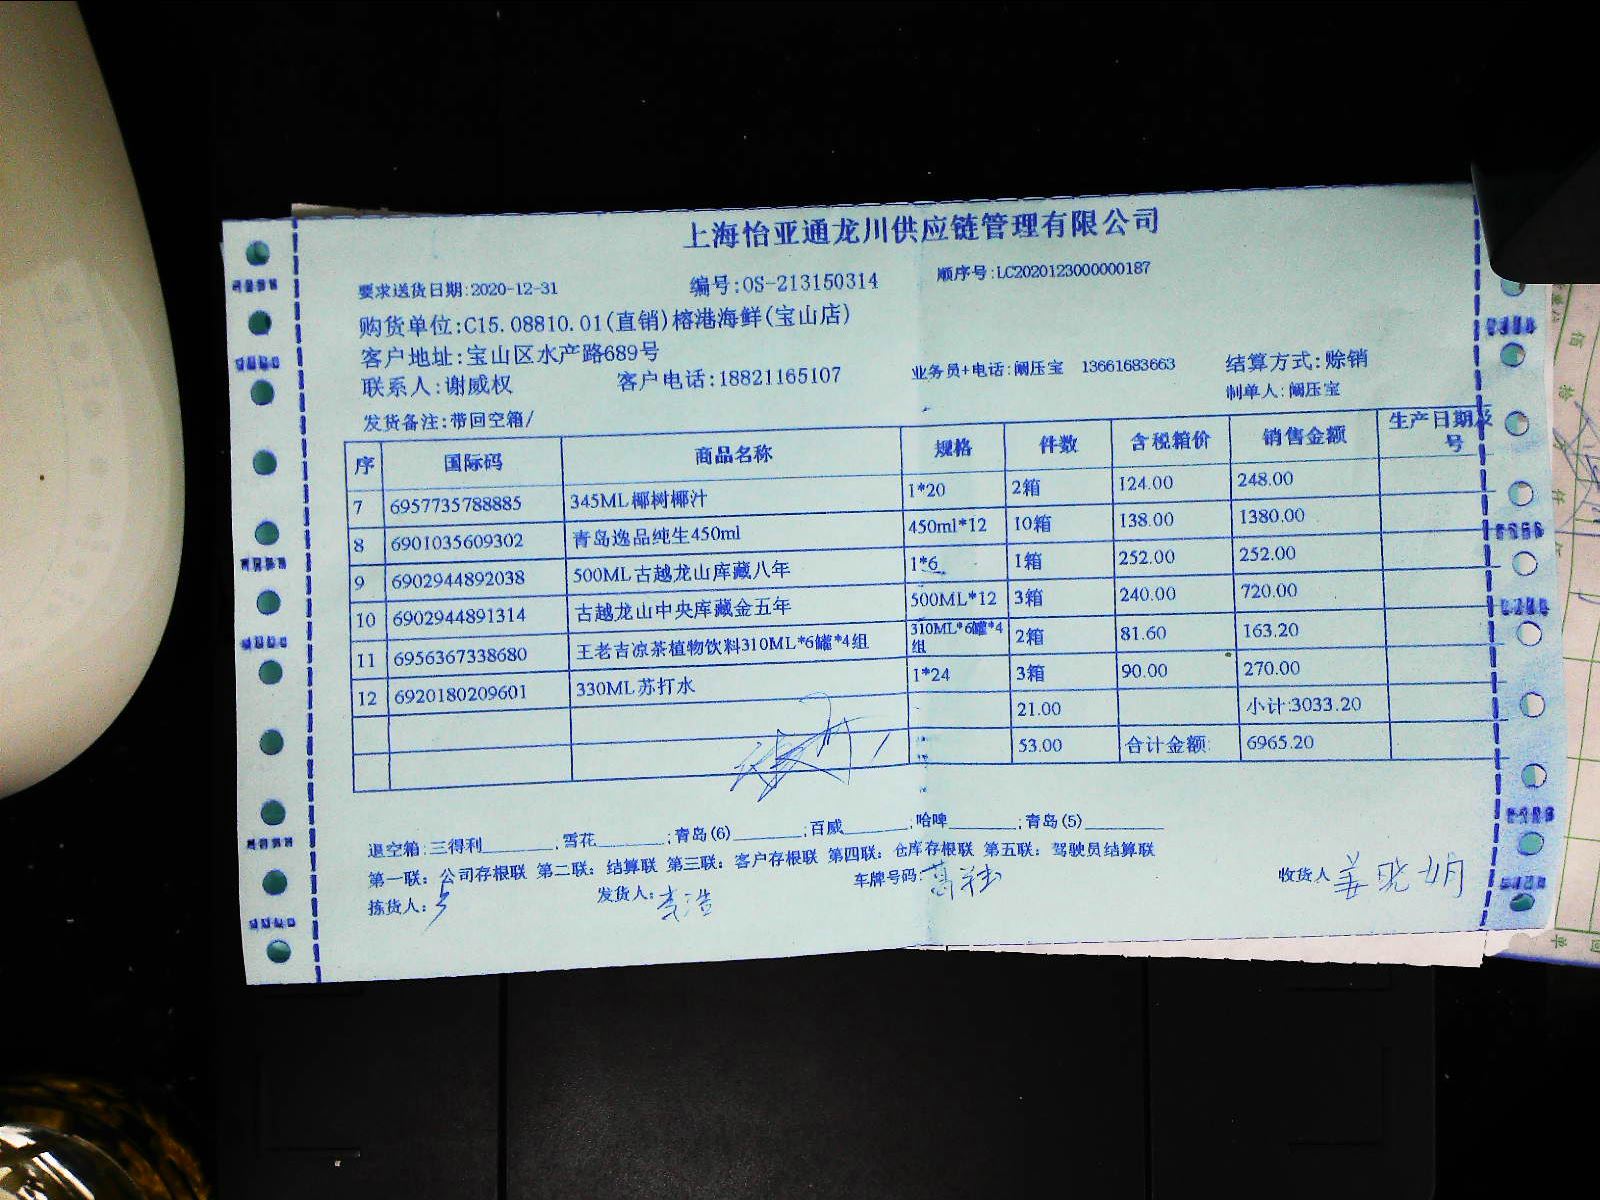 上海怡亚通龙川供应链管理有限公司
要求送货日期:2020-12-31 编号:OS-213150314 顺序号:LC2020123000000187
购货单位:C15.08810.01(直销)榕港海鲜(宝山店)
客户地址:宝山区水产路689号
联系人:谢威权 客户电话:18821165107 业务员+电话:阚压宝 13661683663 结算方式:赊销
制单人:阚压宝
发货备注:带回空箱/
序 国际码 商品名称 规格 件数 含税箱价 销售金额 生产日期及号
7 6957735788885 345ML椰树椰汁 1*20 2箱 124.00 248.00
8 6901035609302 青岛逸品纯生450ml 450ml*12 10箱 138.00 1380.00
9 6902944892038 500ML古越龙山库藏八年 1*6 1箱 252.00 252.00
10 6902944891314 古越龙山中央库藏金五年 500ML*12 3箱 240.00 720.00
11 6956367338680 王老吉凉茶植物饮料310ML*6罐*4组 310ML*6罐*4组 2箱 81.60 163.20
12 6920180209601 330ML苏打水 1*24 3箱 90.00 270.00
21.00 小计:3033.20
53.00 合计金额: 6965.20
退空箱:三得利________,雪花________;青岛(6)________;百威________,哈啤________;青岛(5)________
第一联：公司存根联 第二联：结算联 第三联：客户存根联 第四联：仓库存根联 第五联：驾驶员结算联
拣货人: 发货人:李浩 车牌号码: 收货人 姜晓娟